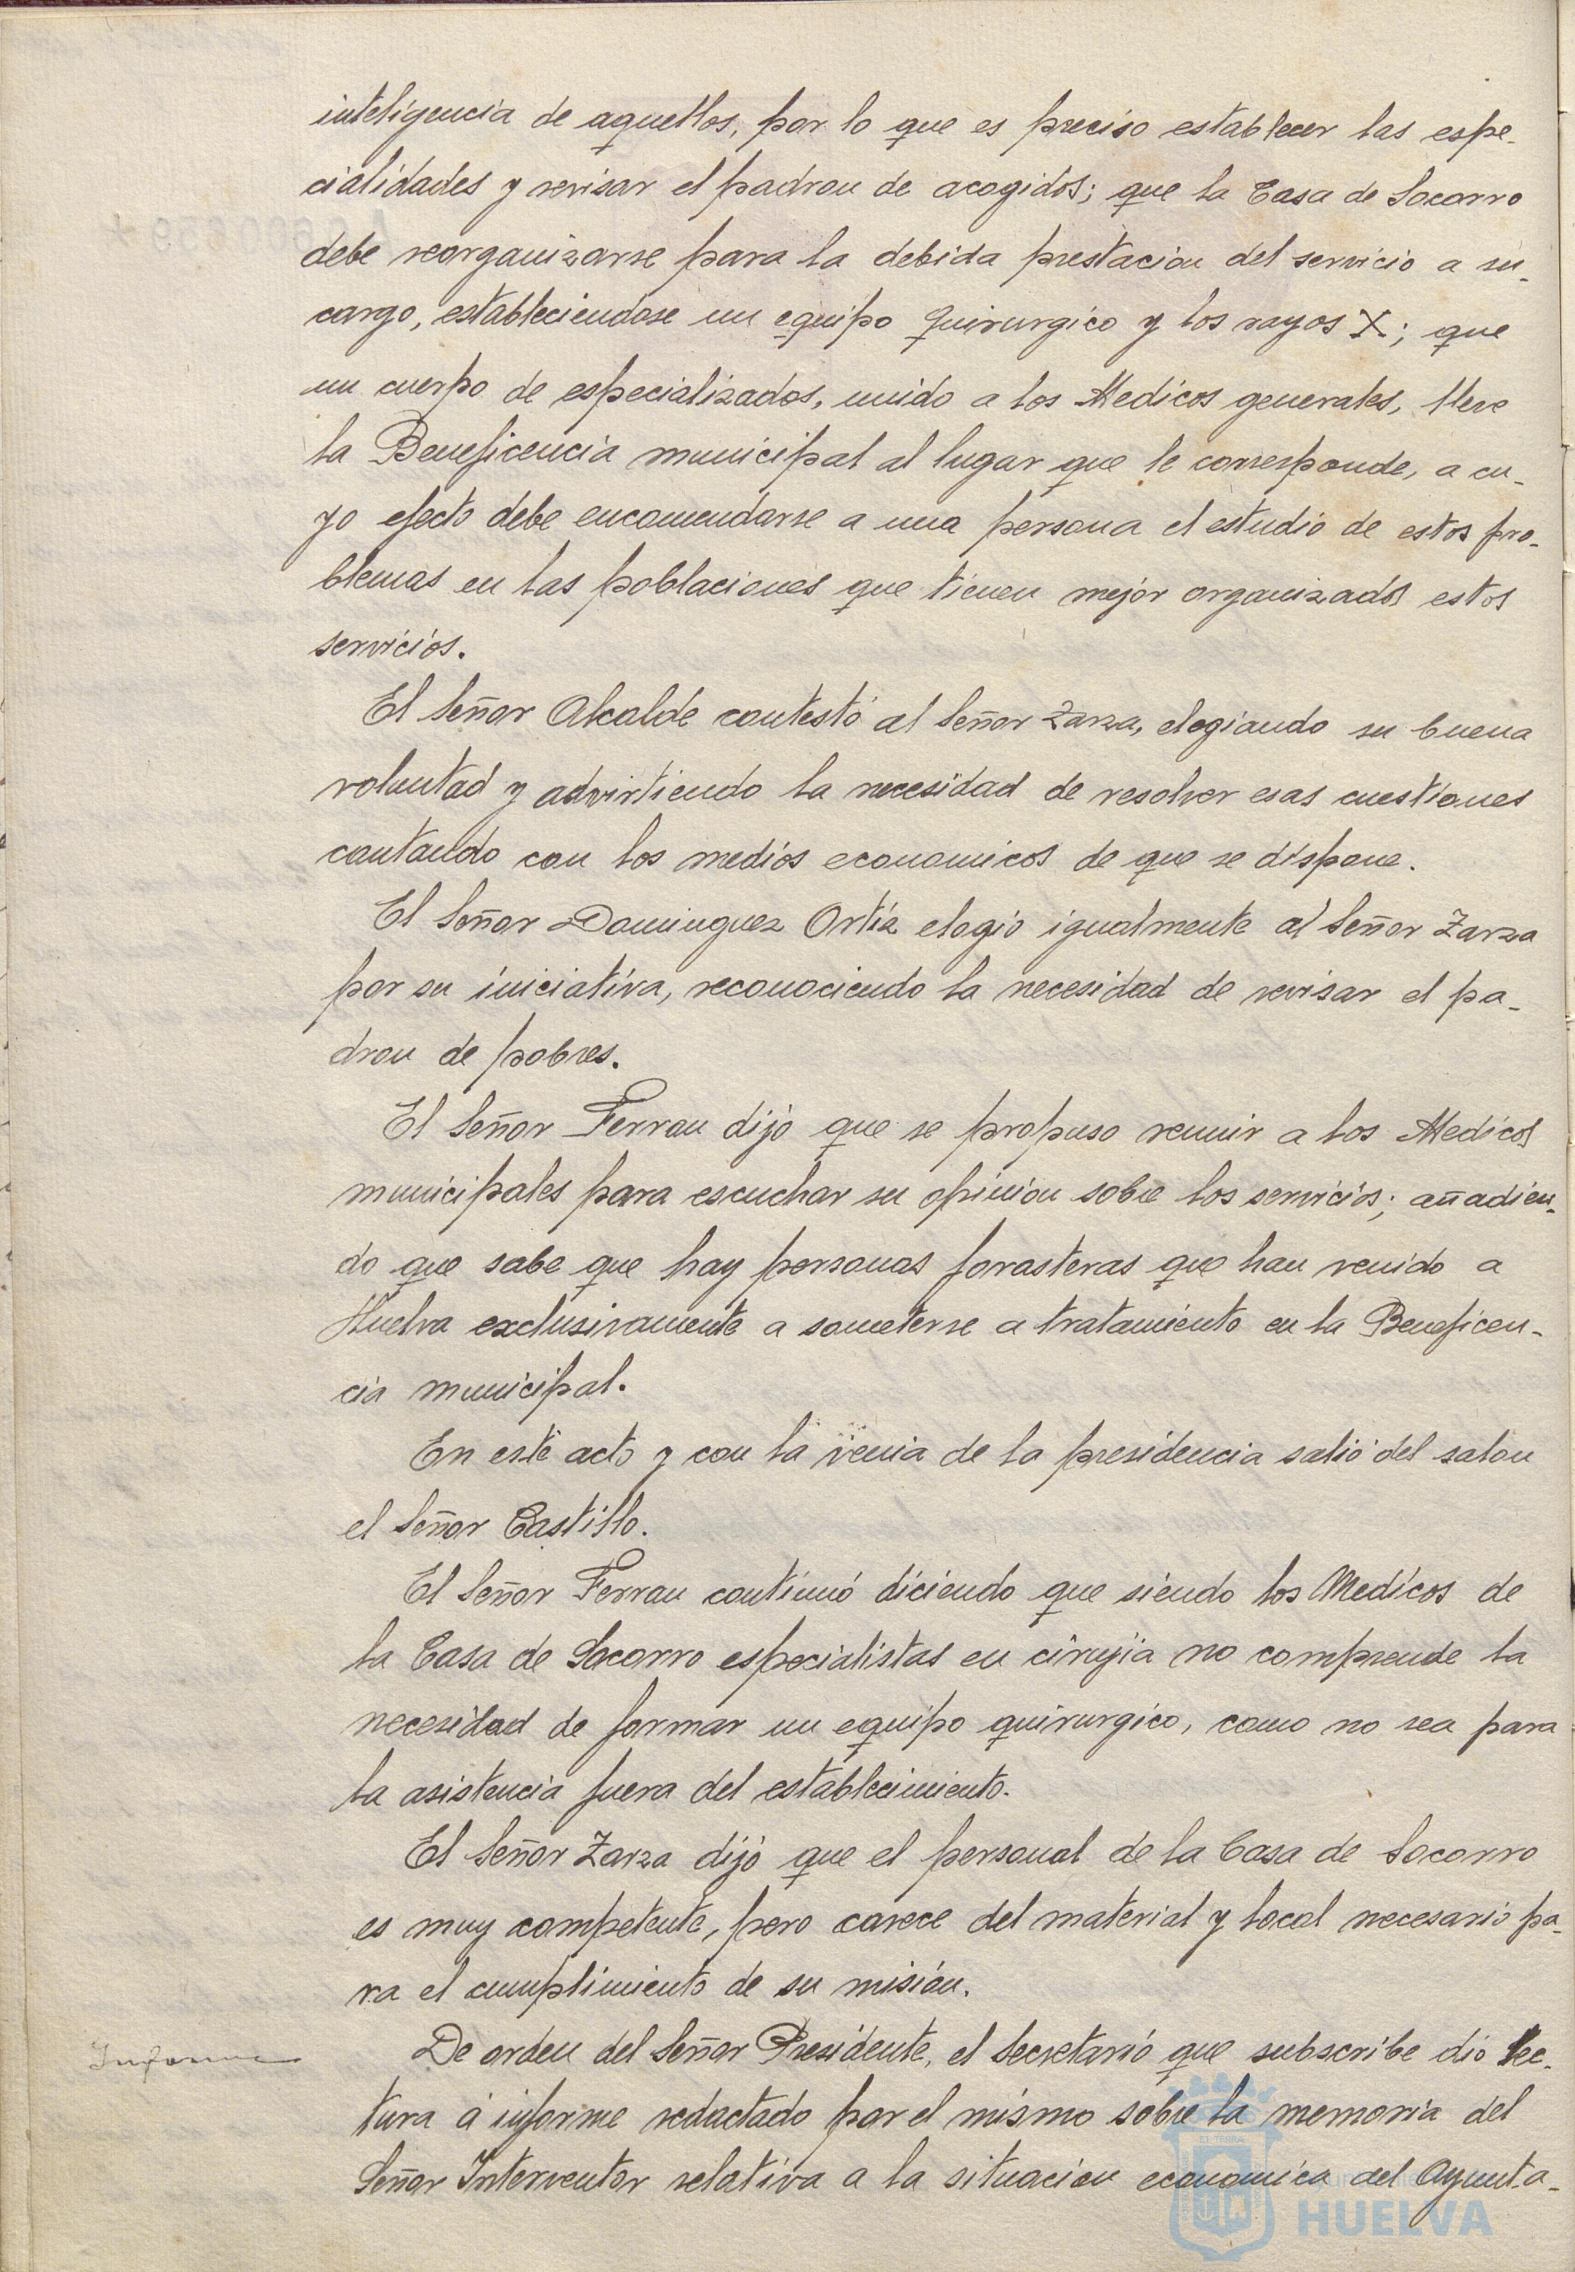 inteligencia de aquellos, por lo que es preciso establecer las espe-
cialidades y revisar el padron de acogidos; que la Casa de Socorro
debe reorganizarse para la debida prestacion del servicio a su
cargo, estableciendose un equipo quirurgico y los rayos X; que
un cuerpo de especializados, unido a los Medicos generales, lleve
la Beneficencia municipal al lugar que le corresponde, a cu-
yo efecto debe encomendarse a una persona el estudio de estos pro-
blemas en las poblaciones que tienen mejor organizados estos
servicios.
El Señor Alcalde contestó al Señor Zarza, elogiando su buena
voluntad y advirtiendo la necesidad de resolver esas cuestiones
contando con los medios economicos de que se dispone.
El Señor Dominguez Ortiz elogió igualmente al Señor Zarza
por su iniciativa, reconociendo la necesidad de revisar el pa-
dron de pobres.
El Señor Terran dijo que se propuso reunir a los Medicos
municipales para escuchar su opinion sobre los servicios; añadien-
do que sabe que hay personas forasteras que han venido a
Huelva exclusivamente a someterse a tratamiento en la Beneficen-
cia municipal.
En este acto y con la venia de la presidencia salió del salon
el Señor Castillo.
El Señor Terran continuó diciendo que siendo los Medicos de
la Casa de Socorro especialistas en cirujia no comprende la
necesidad de formar un equipo quirurgico, como no sea para
la asistencia fuera del establecimiento.
El Señor Zarza dijo que el personal de la Casa de Socorro
es muy competente, pero carece del material y local necesario pa-
ra el cumplimiento de su misión.
Informe
De orden del Señor Presidente, el Secretario que subscribe dio lec-
tura á informe redactado por el mismo sobre la memoria del
Señor Interventor relativa a la situacion economica del Ayunta-
HUELVA